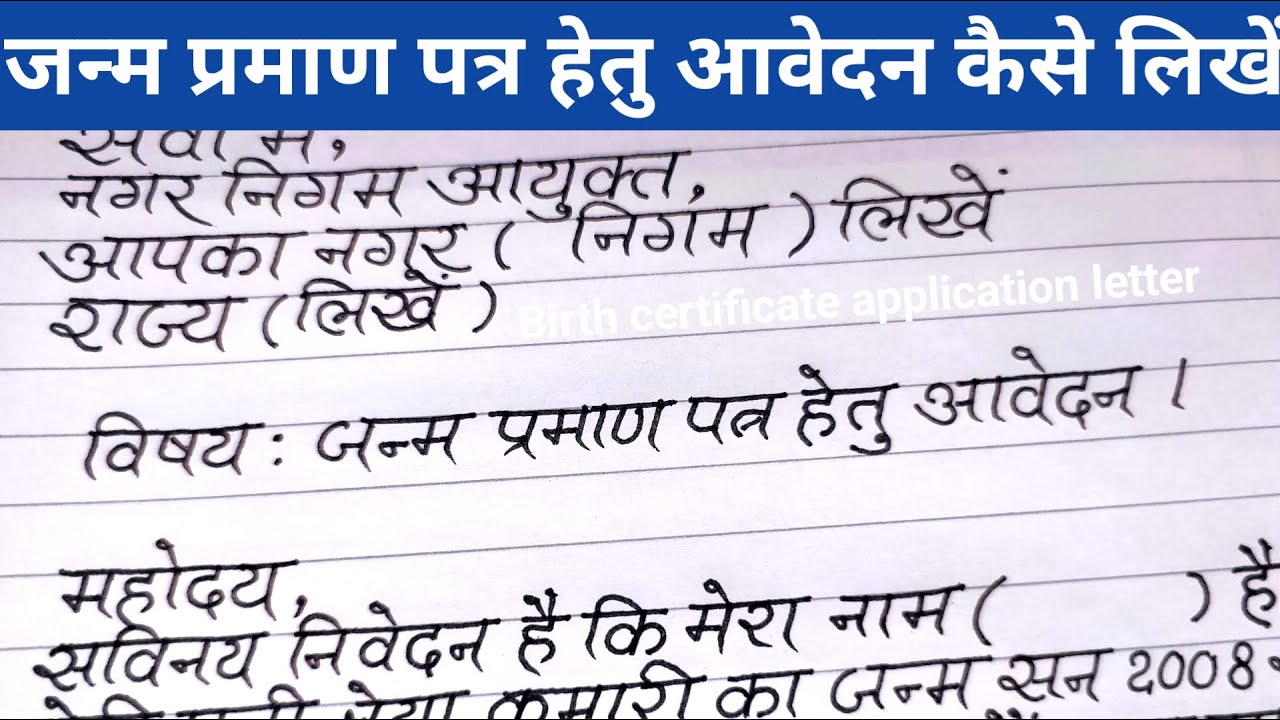 जन्म प्रमाण पत्र हेतु आवेदन कैसे लिखें
सेवा में,
नगर निगम आयुक्त,
आपका नगर ( निगम ) लिखें
राज्य (लिखें )
Birth certificate application letter
विषय : जन्म प्रमाण पत्र हेतु आवेदन ।
महोदय,
सविनय निवेदन है कि मेरा नाम ( ) है
कुमारी का जन्म सन 2008